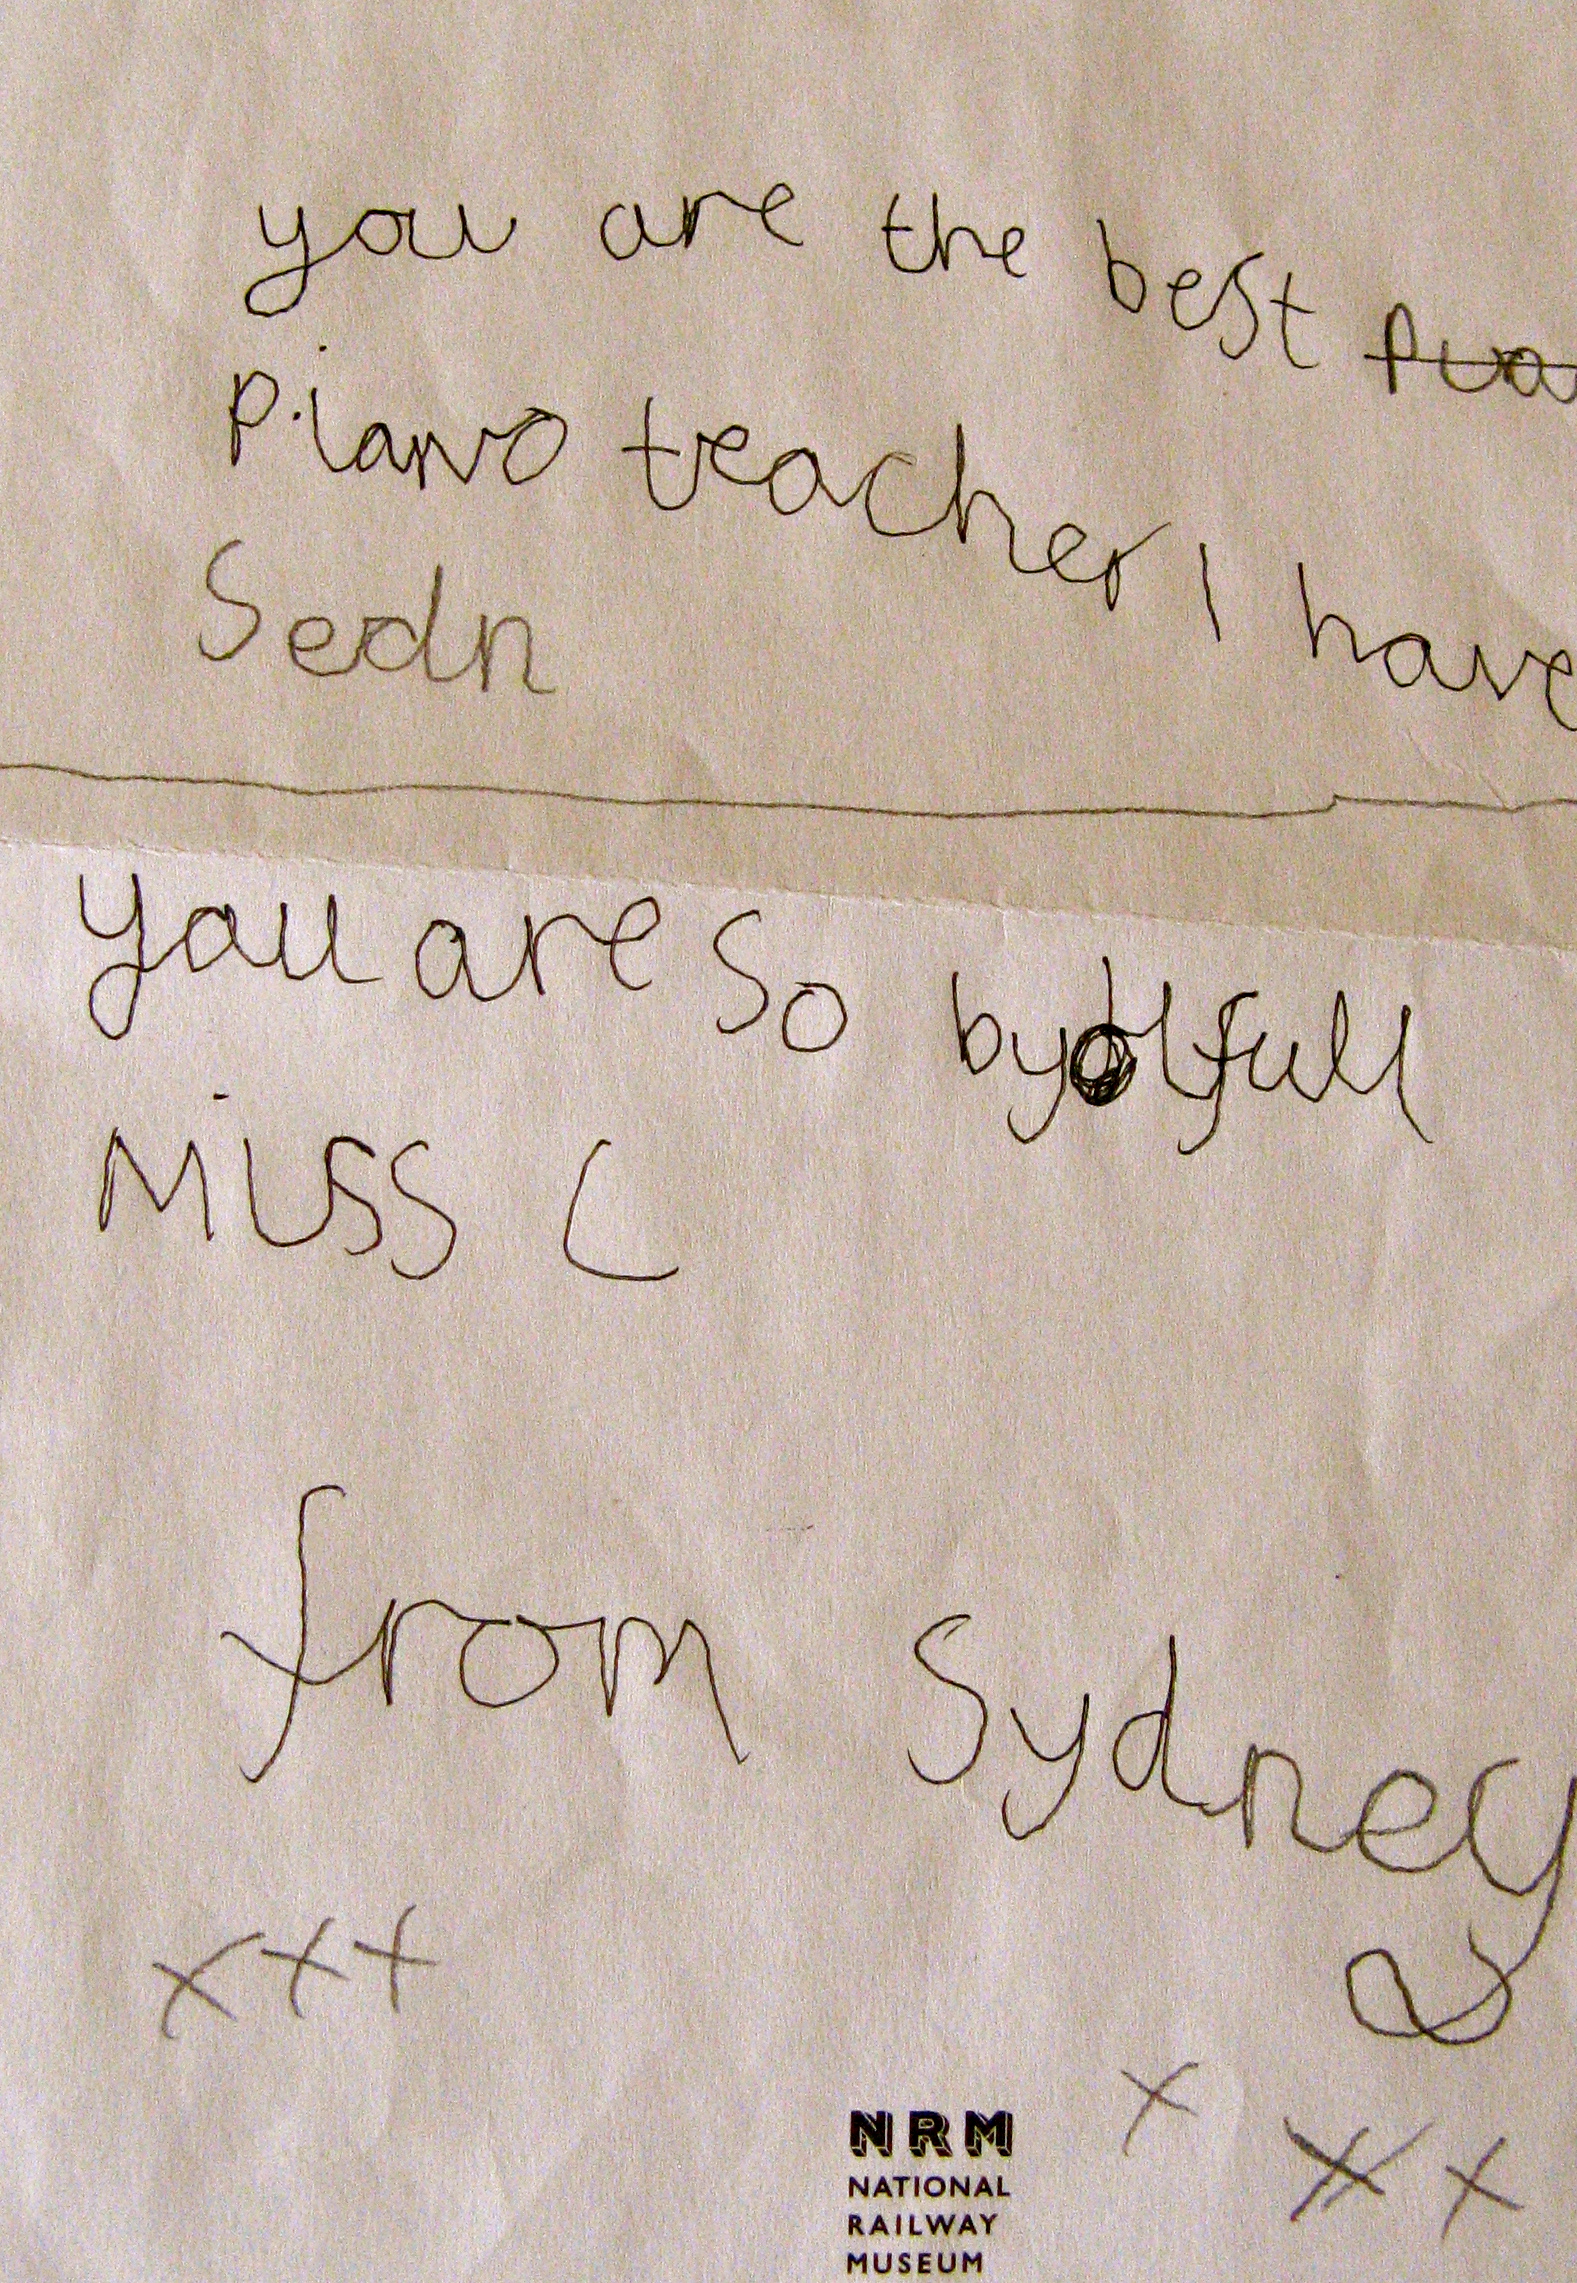 you are the best
piano teacher I have
Sedn
you are so bydtfull
Miss C
from Sydney
x x x
x x x
NRM
NATIONAL
RAILWAY
MUSEUM